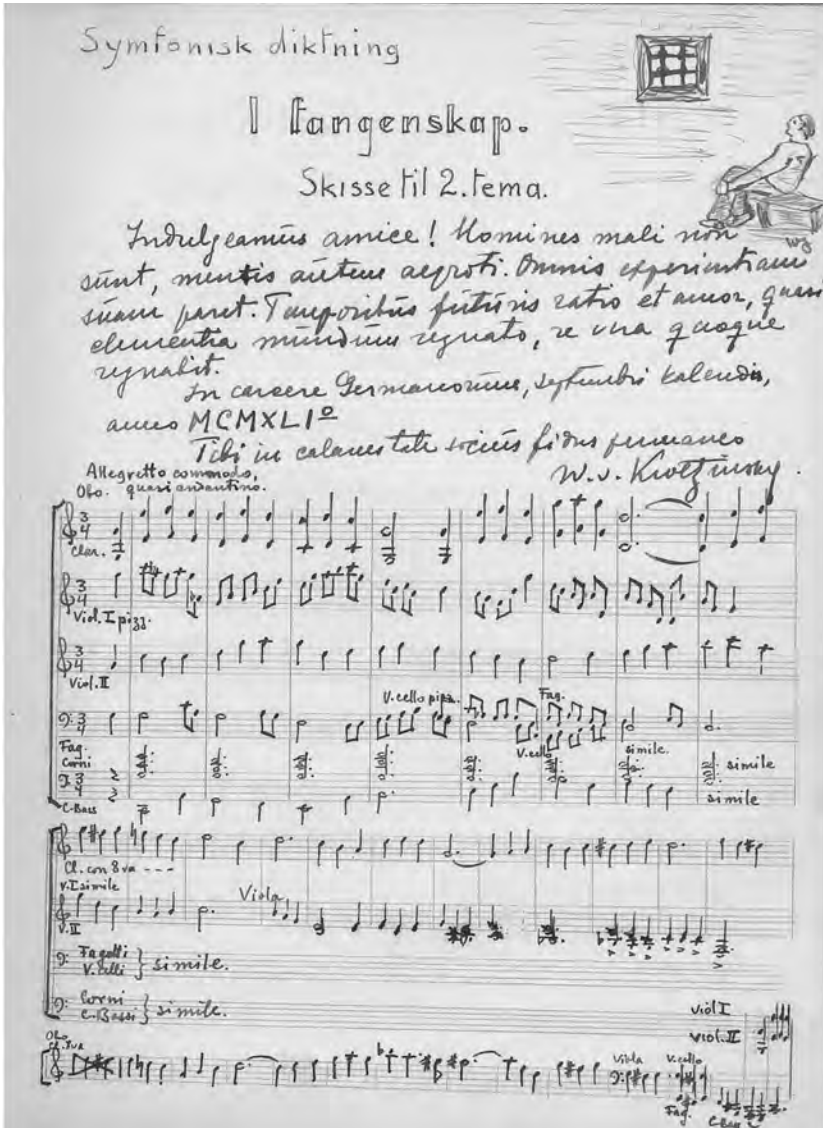 Symfonisk diktning
I fangenskap.
Skisse til 2. tema.
Indulgeamus amice! Homines mali non
sunt, mentis autem aegroti. Omnis experientiam
suam paret. Temporibus futuris ratio et amor, quasi
clementia mundum regnato, re vera quoque
regnabit.
In carcere Germanorum, septembri kalendis,
anno MCMXLIº
Tibi in calamitate socius fidus permaneo
W. v. Kwetzinsky.
Allegretto commodo,
quasi andantino.
Obo.
Clar.
Viol. I pizz.
Viol. II
V. cello pizz.
Fag.
Fag.
Corni
V. cello
simile.
simile
C-Bass
simile
Cl. con 8va ---
V. I simile
Viola
V. II
Fagotti
V. celli } simile.
Corni
C-Bassi } simile.
Viol I
Viol. II
Obo
Cl. 8va
Viola
V. cello
Fag.
C-Bass